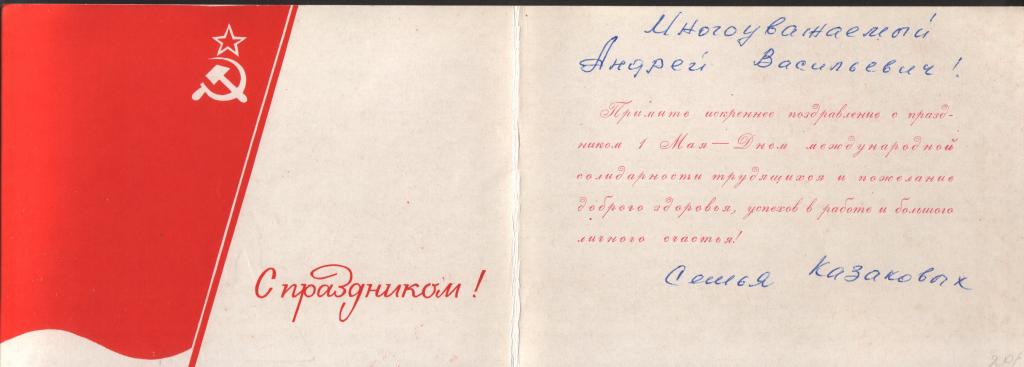 С праздником!
Многоуважаемый
Андрей Васильевич!
Примите искреннее поздравление с празд-
ником 1 Мая — Днем международной
солидарности трудящихся и пожелание
доброго здоровья, успехов в работе и большого
личного счастья!
Семья Казаковых